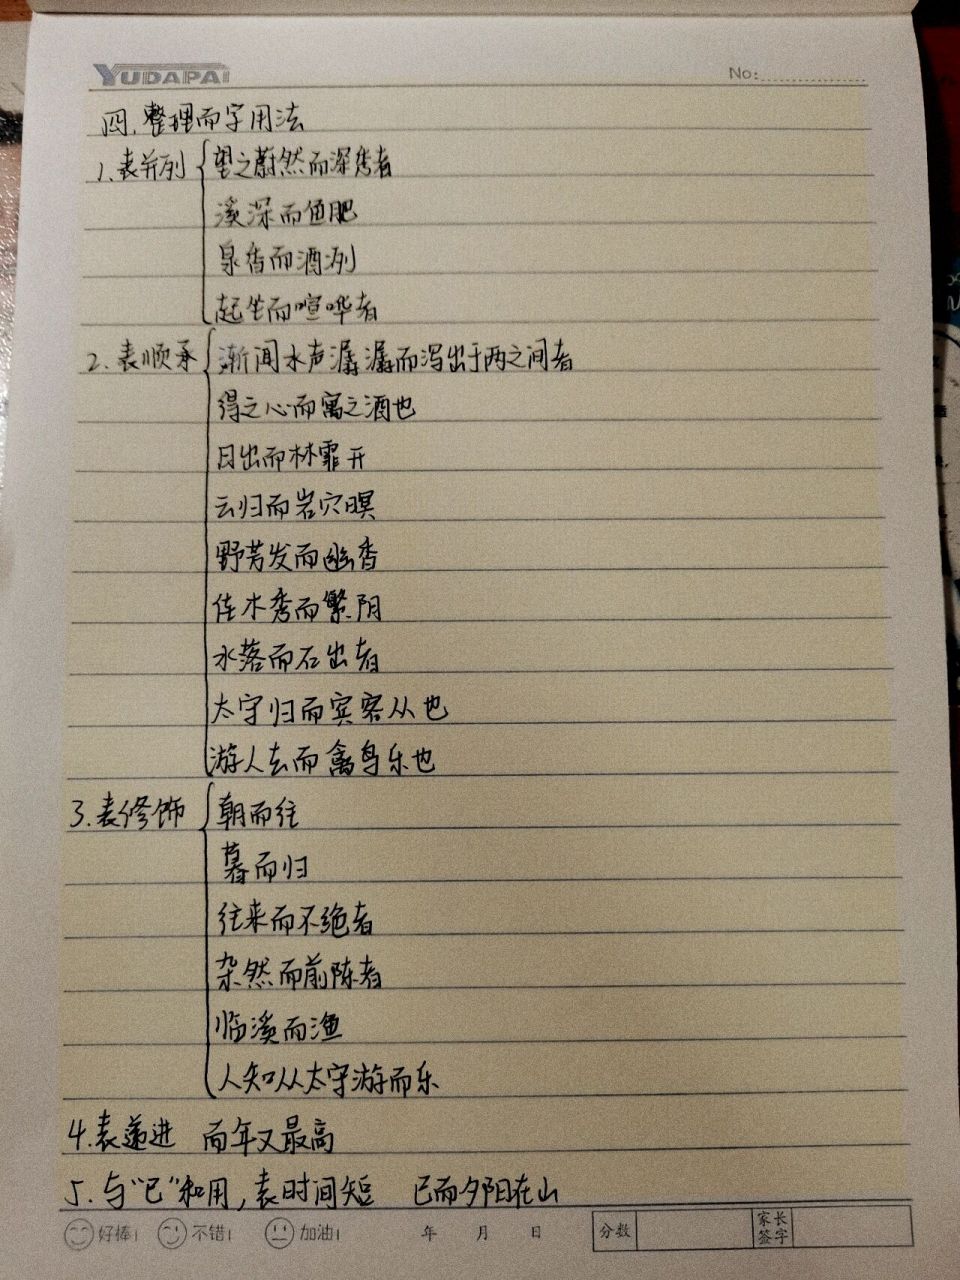 YUDAPAI
No:
四.整理而字用法
1.表并列 望之蔚然而深秀者
溪深而鱼肥
泉香而酒洌
起坐而喧哗者
2.表顺承 渐闻水声潺潺而泻出于两之间者
得之心而寓之酒也
日出而林霏开
云归而岩穴暝
野芳发而幽香
佳木秀而繁阴
水落而石出者
太守归而宾客从也
游人去而禽鸟乐也
3.表修饰 朝而往
暮而归
往来而不绝者
杂然而前陈者
临溪而渔
人知从太守游而乐
4.表递进 而年又最高
5.与"已"和用,表时间短 已而夕阳在山
好棒! 不错! 加油! 年 月 日 分数 家长签字